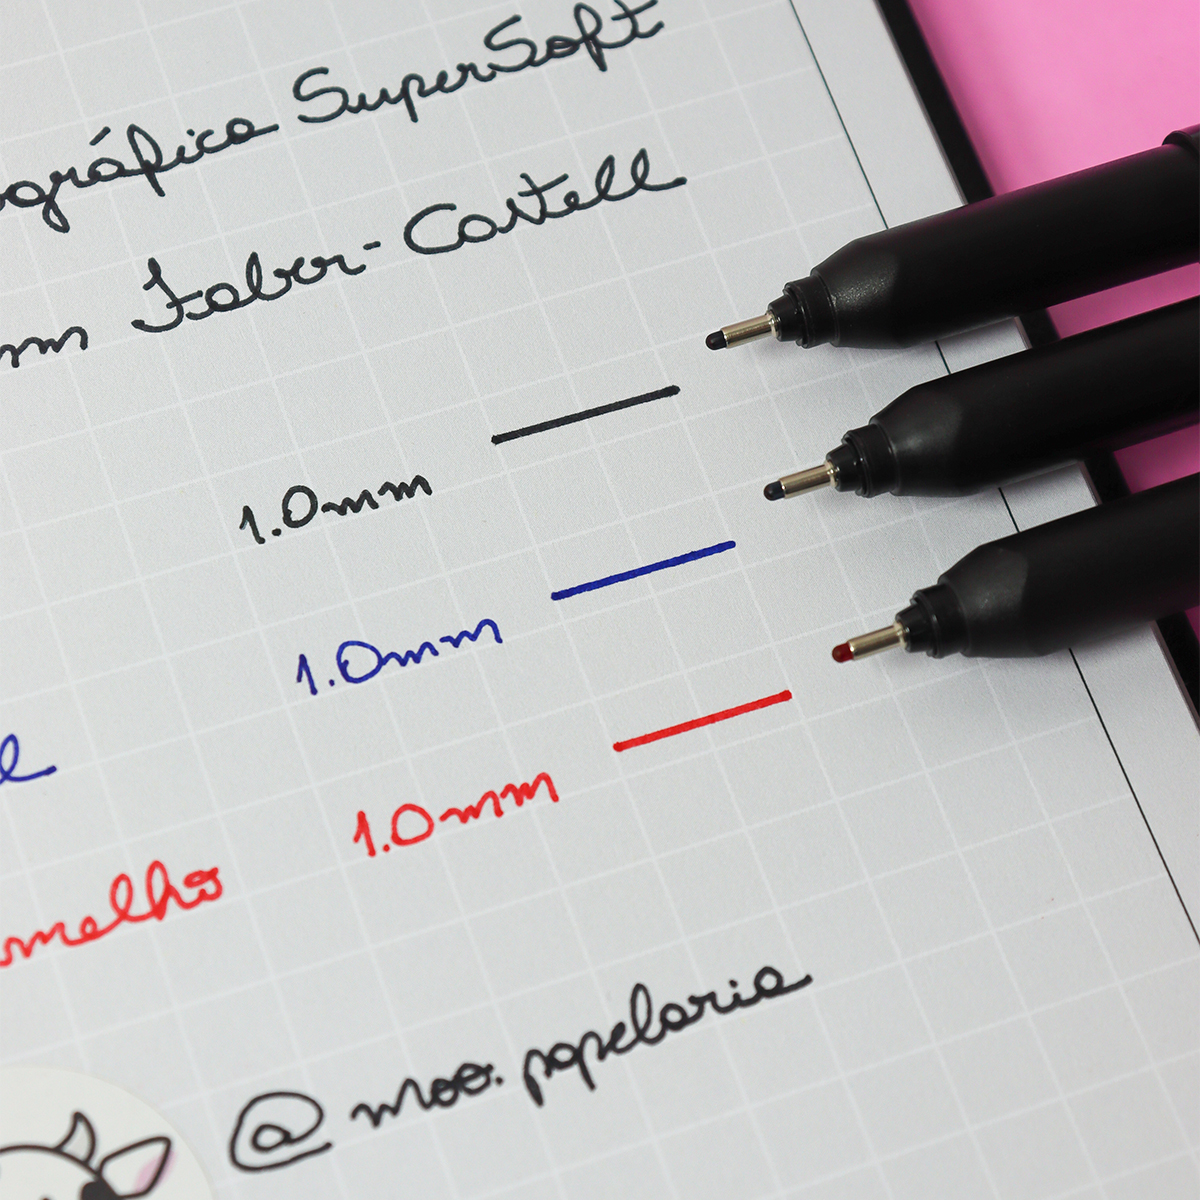 ográfica SuperSoft
mm Faber-Castell
1.0mm
1.0mm
l
1.0mm
rmelho
@moo.papelaria